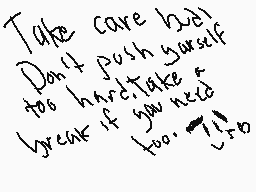 Take care bud!
Don't push yourself
too hard. Take a
break if you need
too.